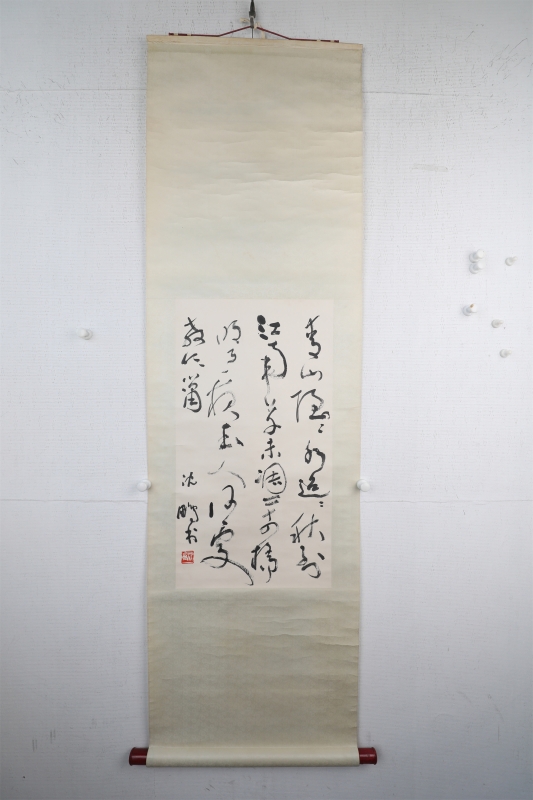 青山隐〻水迢〻秋尽
江南草未凋二十四桥
明月夜玉人何处
教吹箫
沈鹏书